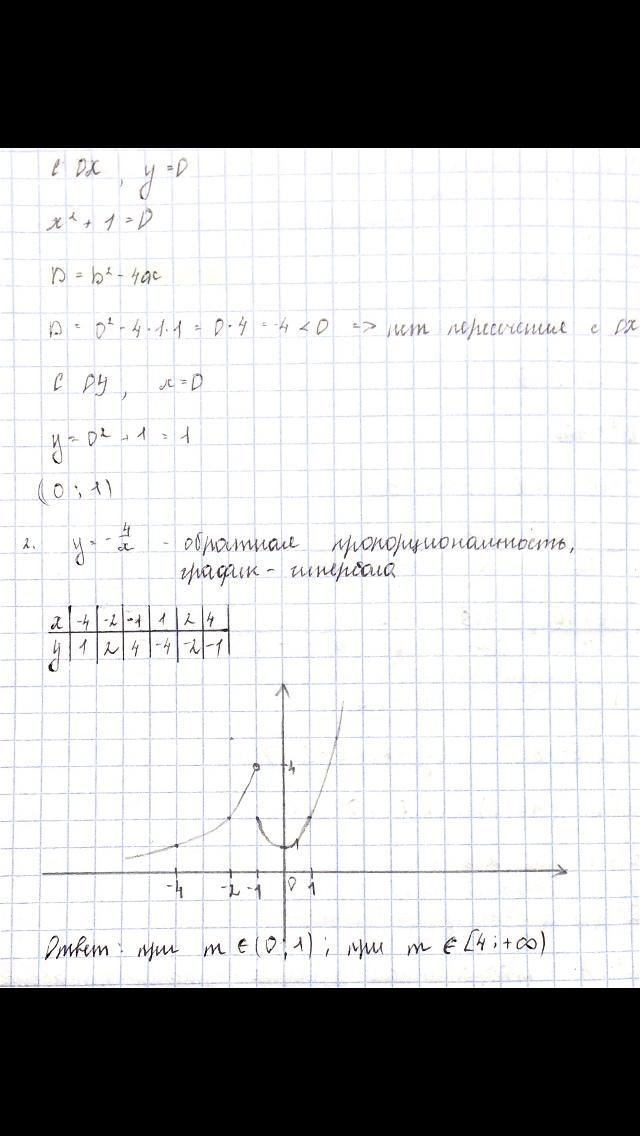 С OX, y=0
x² + 1 = 0
D = b² - 4ac
D = 0² - 4·1·1 = 0·4 = -4 < 0 => нет пересечения с OX
С OY, x=0
y = 0² + 1 = 1
(0;1)
2. y = -4/x - обратная пропорциональность,
график - гипербола
x | -4 | -2 | -1 | 1 | 2 | 4
y | 1 | 2 | 4 | -4 | -2 | -1
4
1
-4 -2 -1 0 1
Ответ: при m ∈ (0;1); при m ∈ [4;+∞)